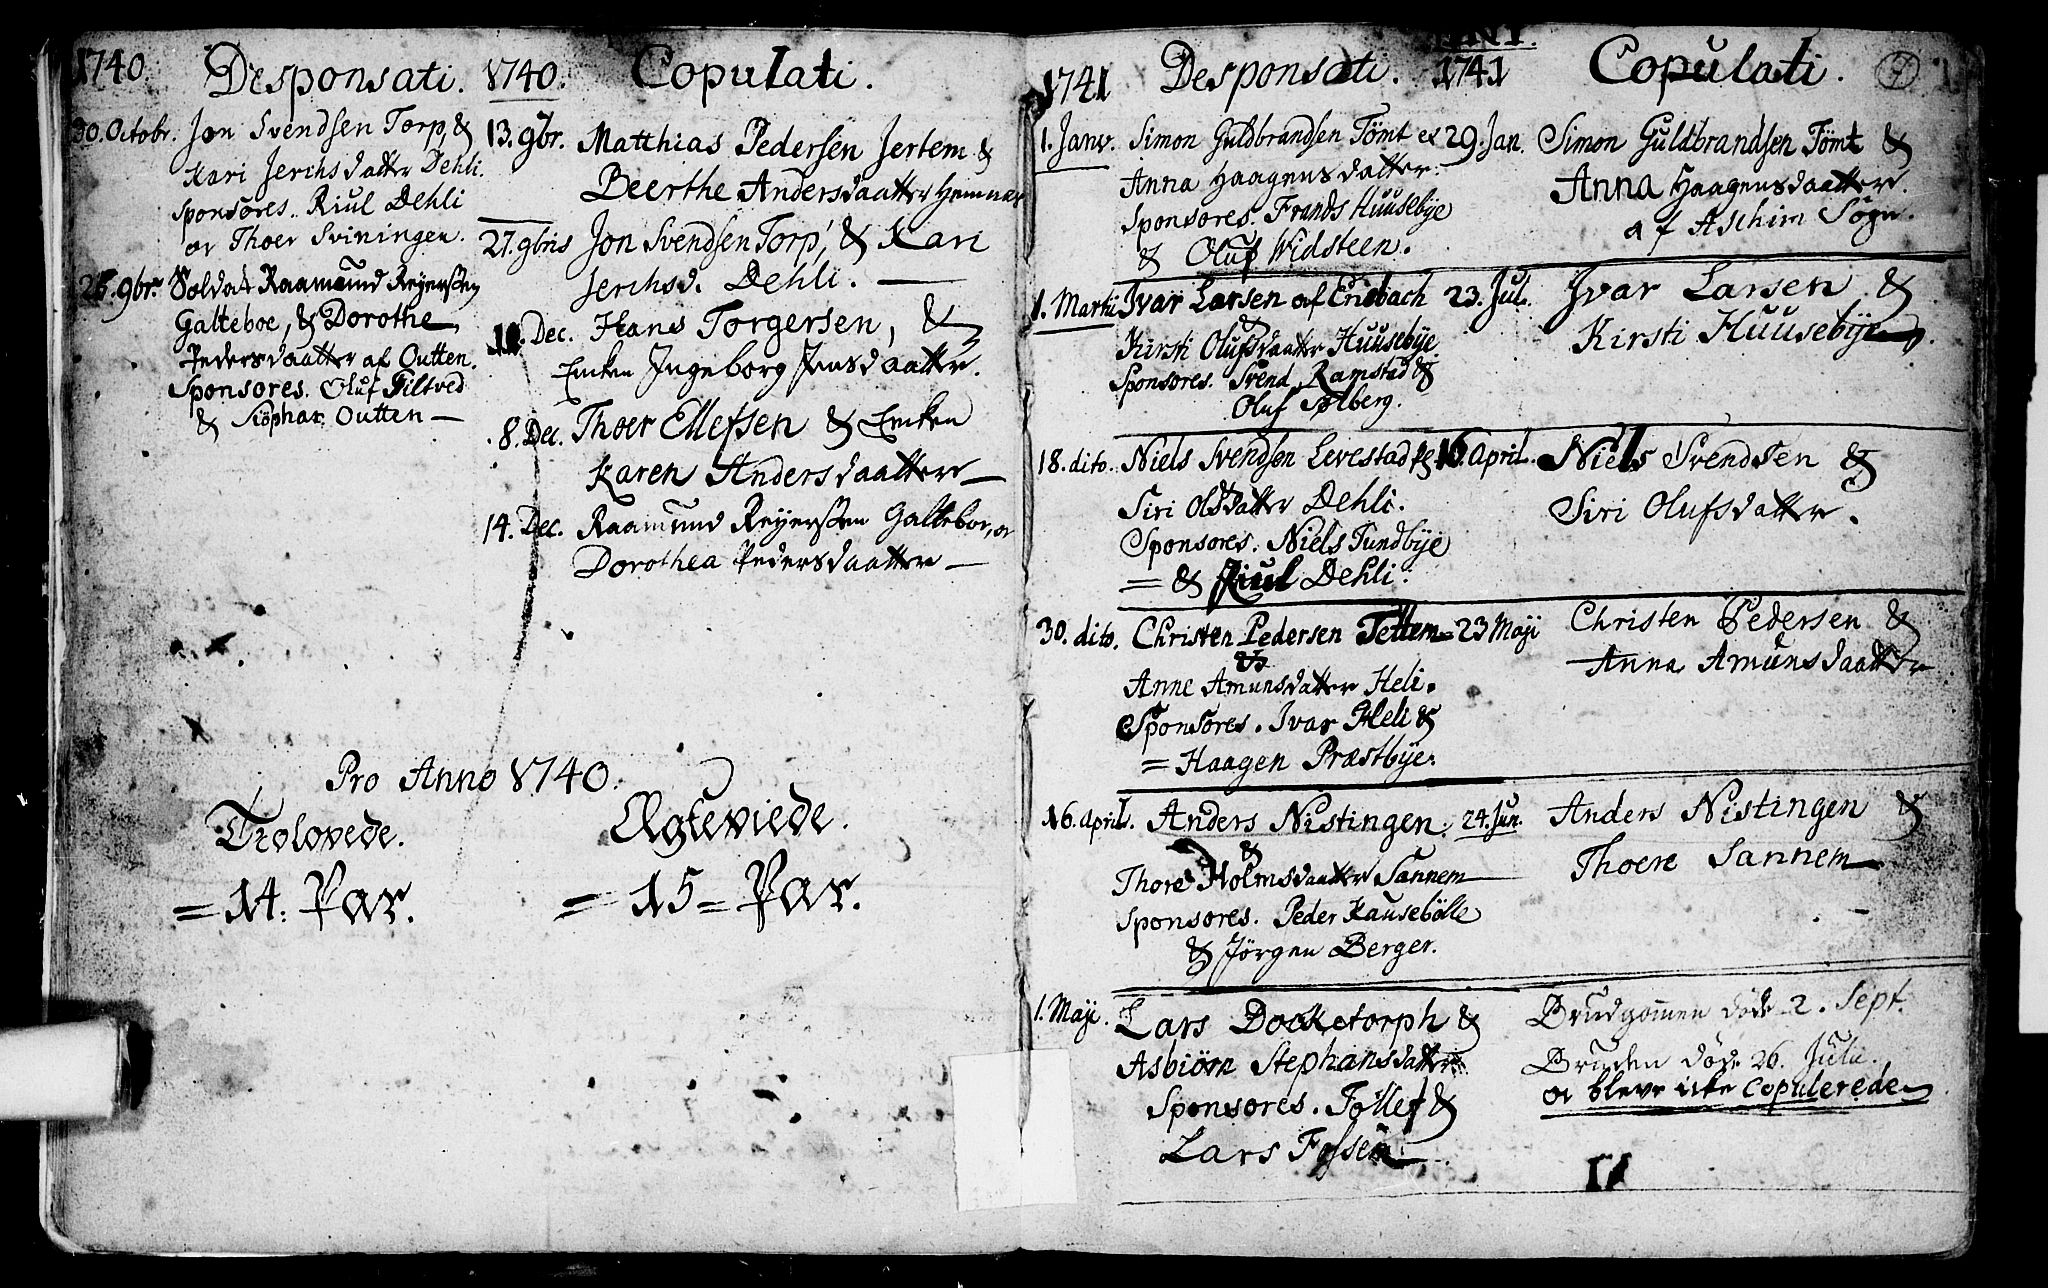 1740
Desponsati.
30. Octobr. Jon Svendsen Torp, &
Kari Jerichsdatter Dehli.
sponsores. Riul Dehli
or Thoer Sviningen.
26. 9br. Soldat Raamund Reyersen
Galteboe, & Dorothe
Pedersdaatter af Outten.
Sponsores. Oluf Tiltved
& Siöphar Outten —
1740.
Copulati.
13. 9br. Matthias Pedersen Jertem &
Beerthe Andersdaatter Hemnes
27. 9bris Jon Svendsen Torp, & Kari
Jerichsd. Dehli. —
Dec. Hans Torgersen, &
Encken Ingeborg Jensdaatter.
8. Dec. Thoer Ellefsen & Encken
Karen Andersdaatter —
14. Dec. Raamund Reyersen Galteboe, or
Dorothea Pedersdaatter —
Pro Anno 1740.
Trolovede.
= 14. Par.
Ægteviede.
= 15 = Par.
1741
Desponsati.
1741
Copulati.
7
1. Janv. Simon Guldbrandsen Tömt et
Anna Haagensdatter.
Sponsores. Frands Huusebye
& Oluf Widsteen.
29. Jan. Simon Guldbrandsen Tömt &
Anna Haagensdaatter.
af Aschim Sogn.
1. Martii Ivar Larsen af Enebach
&
Kirsti Olufsdaatter Huusebye
Sponsores. Svend Ramstad &
Oluf Solberg.
23. Jul. Ivar Larsen &
Kirsti Huusebye.
18. dito. Niels Svendsen Levestad &
Siri Olsdatter Dehli.
Sponsores. Niels Tundbye
= & Riul Dehli.
16. April. Niels Svendsen &
Siri Olufsdatter.
30. dito. Christen Pedersen Tettem
&
Anne Amunsdatter Heli.
Sponsores. Ivar Heli &
= Haagen Præstbye.
23 Maji Christen Pedersen &
Anna Amunsdaatter
16. April. Anders Nistingen.
&
Thore Holmsdaatter Sannem
Sponsores. Peder Kausebölle
& Jörgen Berger.
24. Jun. Anders Nistingen &
Thoere Sannem
1. Maji. Lars Docketorph &
Asbiörn Stephansdatter
Sponsores. Töllef &
Lars Fossen.
Brudgommen döde 2. Sept.
Bruden döde 26. Julii.
or bleve icke Copulerede